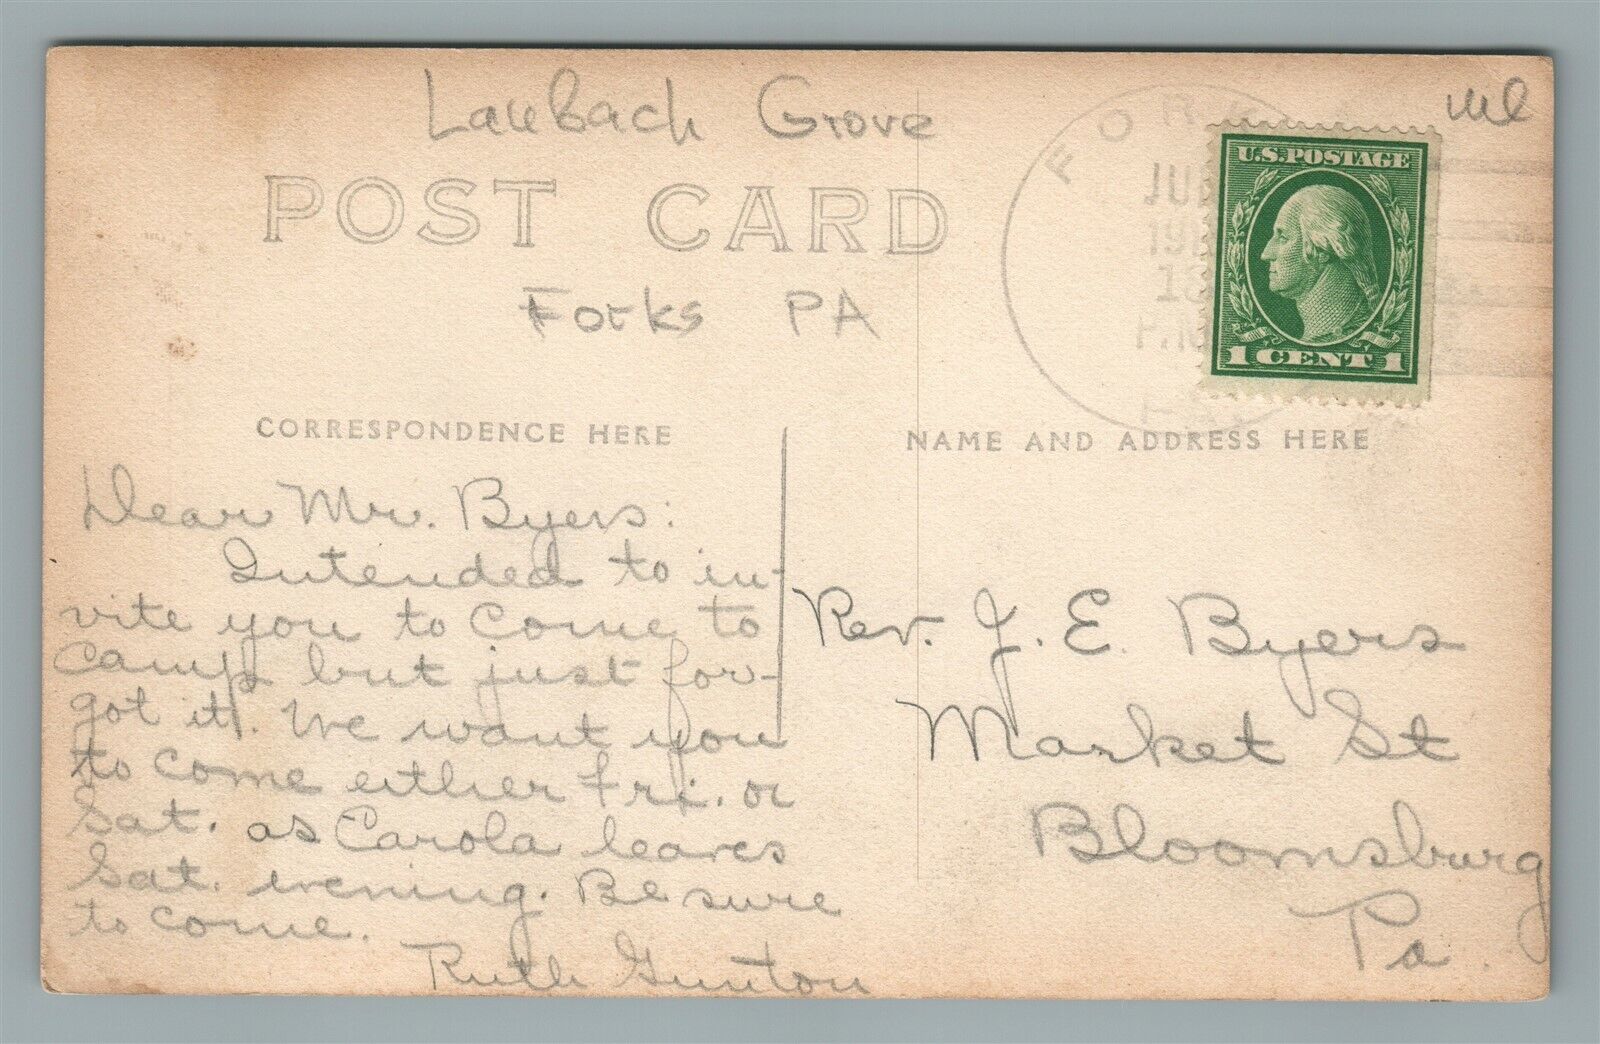 Laubach Grove
POST CARD
Forks PA
FORK
JU
19
18
P.M
U.S. POSTAGE
1 CENT 1
CORRESPONDENCE HERE
NAME AND ADDRESS HERE
Dear Mr. Byers:
Intended to in-
vite you to come to
camp but just for-
got it. We want you
to come either Fri. or
Sat. as Carola leaves
Sat. evening. Be sure
to come.
Ruth Gunton
Rev. J. E. Byers
Market St
Bloomsburg
Pa.